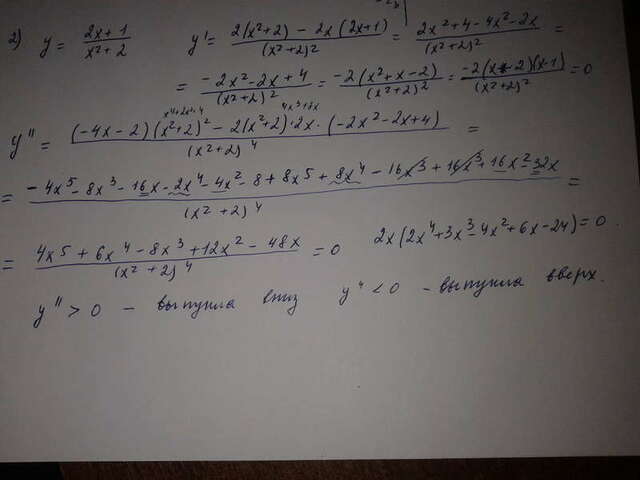 2) y = (2x + 1)/(x² + 2) y' = (2(x²+2) − 2x(2x+1))/(x²+2)² = (2x² + 4 − 4x² − 2x)/(x²+2)² =
= (−2x² − 2x + 4)/(x²+2)² = (−2(x² + x − 2))/(x²+2)² = (−2(x − 2)(x−1))/(x²+2)² = 0
y'' = ((−4x − 2)(x²+2)² − 2(x²+2)·2x·(−2x² − 2x + 4))/(x²+2)⁴ =
= (−4x⁵ − 8x³ − 16x − 2x⁴ − 4x² − 8 + 8x⁵ + 8x⁴ − 16x³ + 16x³ + 16x² − 32x)/(x²+2)⁴ =
= (4x⁵ + 6x⁴ − 8x³ + 12x² − 48x)/(x²+2)⁴ = 0 2x(2x⁴ + 3x³ − 4x² + 6x − 24) = 0
y'' > 0 – выпукла вниз y'' < 0 – выпукла вверх.